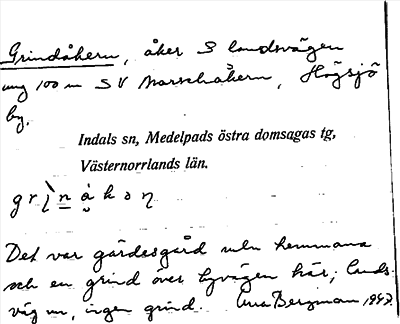 Grindåkern, åker S landsvägen
ung 100 m SV Marschåkern, Högsjö
by.
Indals sn, Medelpads östra domsagas tg,
Västernorrlands län.
Det var gärdesgård mln hemmana
och en grind över byvägen här; lands-
väg nu, ingen grind. Bergman 1943.